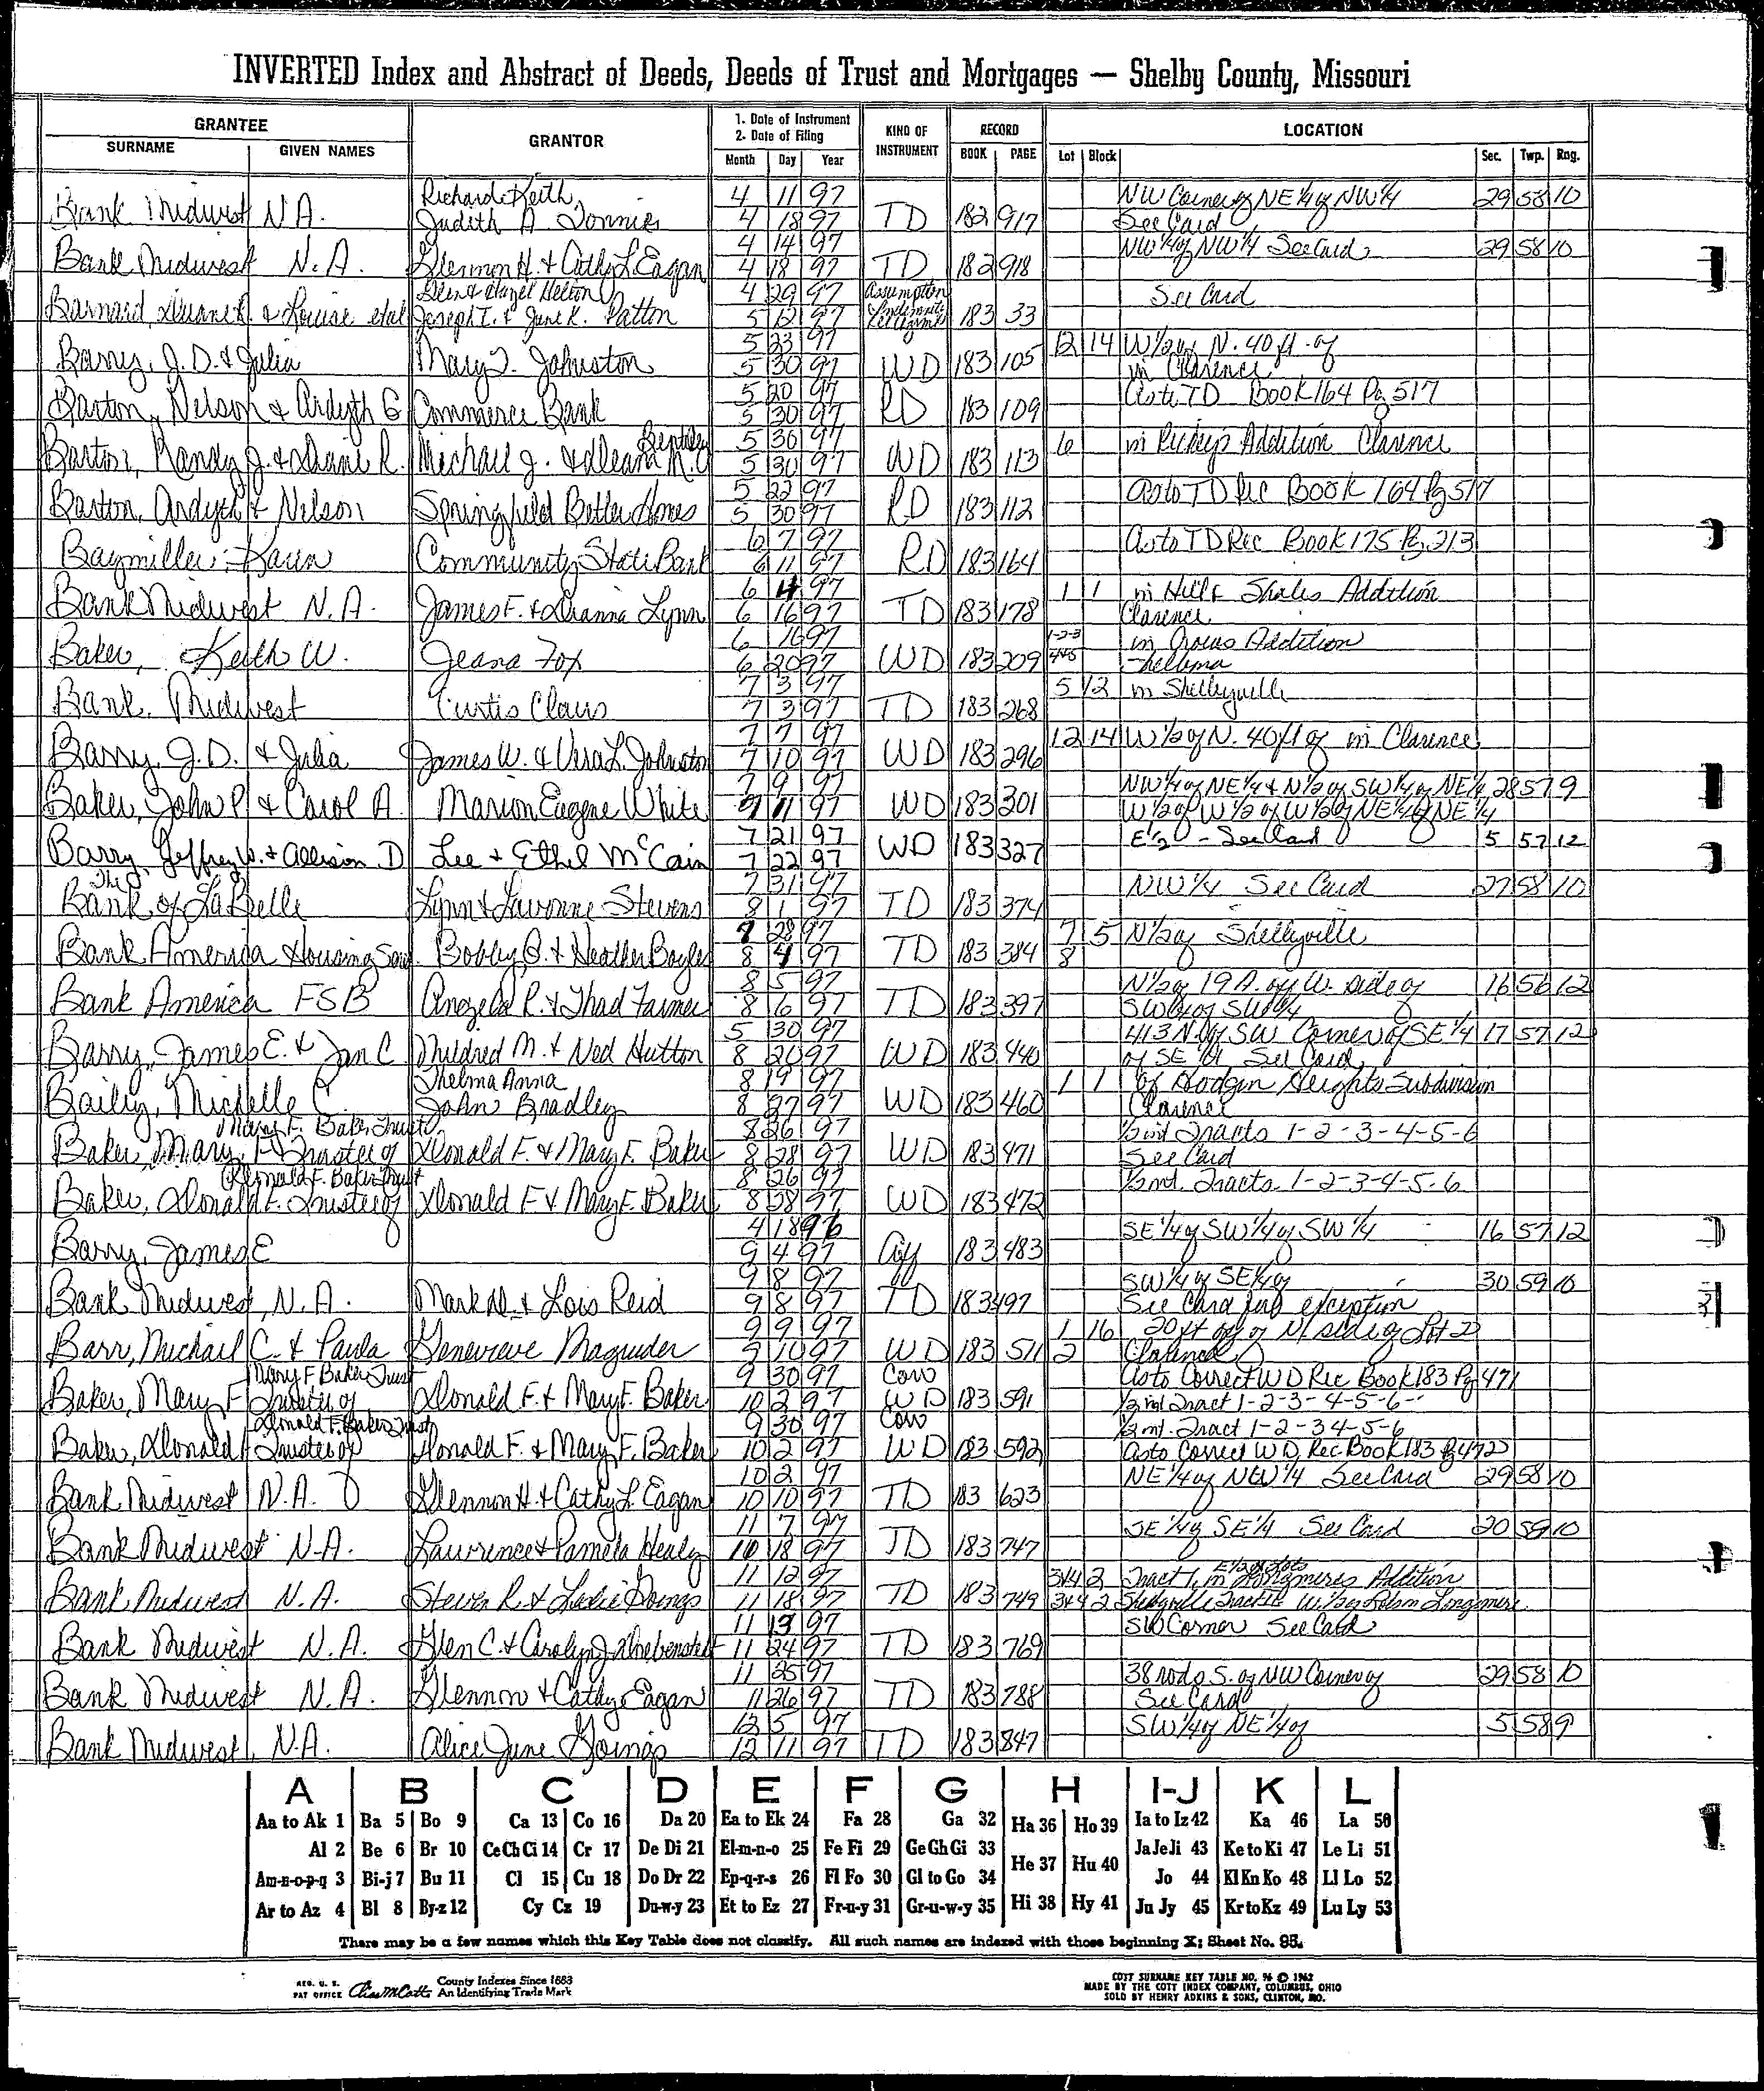 INVERTED Index and Abstract of Deeds, Deeds of Trust and Mortgages — Shelby County, Missouri
GRANTEE GRANTOR 1. Date of Instrument 2. Date of Filing KIND OF INSTRUMENT RECORD LOCATION
SURNAME GIVEN NAMES Month Day Year BOOK PAGE Lot Block Sec. Twp. Rng.
Richard Keith 4 11 97 NW Corner of NE 1/4 of NW 1/4 29 58 10
Bank Midwest N.A. Judith A. 4 18 97 TD 182 917 See Card
4 14 97 NW 1/4 of NW 1/4 See Card 29 58 10
Bank Midwest N.A. Glennon H. & Cathy L. Eagan 4 18 97 TD 182 918
Glen & Hazel Helton 4 29 97 Assumption See Card
Barnard, Duane & Louise etal Joseph I. & June K. Patton 5 12 97 183 33
5 23 97 12 14 W 1/2 of N. 40 ft. of
Barry, J.D. & Julia Mary J. Johnston 5 30 97 WD 183 105 in Clarence
5 20 97 As to TD Book 164 Pg 517
Barton, Nelson & Ardyth G Commerce Bank 5 30 97 RD 183 109
Bentley 5 30 97 6 in Addition Clarence
Barton, Randy J. & Diane R. Michael J. & 5 30 97 WD 183 113
5 22 97 As to TD Rec Book 164 Pg 517
Barton, Ardyth & Nelson Springfield Better Homes 5 30 97 RD 183 112
6 7 97 As to TD Rec Book 175 Pg. 213
Baymiller, Karen Community State Bank 6 11 97 RD 183 164
6 4 97 1 1 in Hill & Shales Addition
Bank Midwest N.A. James F. & Deanna Lynn 6 16 97 TD 183 178 Clarence
6 16 97 1-2-3 in Crows Addition
Baker, Keith W. Jeana Fox 6 20 97 WD 183 209 4&5 Shelbina
7 3 97 5 12 in Shelbyville
Bank Midwest Curtis Claus 7 3 97 TD 183 268
7 7 97 12 14 W 1/2 of N. 40 ft of in Clarence
Barry, J.D. & Julia James W. & Vera L. Johnston 7 10 97 WD 183 296
7 9 97 NW 1/4 of NE 1/4 & N 1/2 of SW 1/4 of NE 1/4 28 57 9
Baker, John P. & Carol A. Marion Eugene White 7 11 97 WD 183 301 W 1/2 of W 1/2 of W 1/2 of NE 1/4 of NE 1/4
7 21 97 E 1/2 - See Card 5 57 12
Barry, Jeffrey W. & Allison D Lee & Ethel McCain 7 22 97 WD 183 327
The 7 31 97 NW 1/4 See Card 27 58 10
Bank of LaBelle Lynn & Lavonne Stevens 8 1 97 TD 183 374
7 28 97 7 5 N 1/2 of Shelbyville
Bank America Housing Serv. Bobby & Heather 8 4 97 TD 183 384 8
8 5 97 N 1/2 of 19 A. off W. side of 16 56 12
Bank America FSB Angela R. & Thad Farmer 8 6 97 TD 183 397 SW 1/4 of SW 1/4
5 30 97 413 N. of SW Corner of SE 1/4 17 57 12
Barry, James E. & Jan C. Mildred M. & Ned Hutton 8 20 97 WD 183 440 of SE 1/4 See Card
Thelma Anna 8 19 97 1 1 of Hodgin Heights Subdivision
Bailey, Michelle C. John Bradley 8 27 97 WD 183 460 Clarence
Mary F. Baker Trust 8 26 97 1/2 int Tracts 1-2-3-4-5-6
Baker, Mary F Trustee of Donald F. & Mary F. Baker 8 28 97 WD 183 471 See Card
Donald F. Baker Trust 8 26 97 1/2 int. Tracts 1-2-3-4-5-6
Baker, Donald F. Trustee of Donald F & Mary F. Baker 8 28 97 WD 183 472
4 18 96 SE 1/4 of SW 1/4 of SW 1/4 16 57 12
Barry, James E 9 4 97 Aff 183 483
9 8 97 SW 1/4 of SE 1/4 of 30 59 10
Bank Midwest, N.A. Mark D. & Lois Reid 9 8 97 TD 183 497 See Card for exception
9 9 97 1 16 20 ft off of N side of Lot 2
Barr, Michael C. & Paula Genevieve Magruder 9 10 97 WD 183 511 2 Clarence
Mary F Baker Trust 9 30 97 Corr As to Correct WD Rec Book 183 Pg 471
Baker, Mary F Trustee of Donald F. & Mary F. Baker 10 2 97 WD 183 591 1/2 int Tract 1-2-3-4-5-6
Donald F. Baker Trust 9 30 97 Corr 1/2 int. Tract 1-2-3 4-5-6
Baker, Donald F Trustee of Donald F. & Mary F. Baker 10 2 97 WD 183 592 As to Correct WD Rec Book 183 Pg 472
10 2 97 NE 1/4 of NW 1/4 See Card 29 58 10
Bank Midwest N.A. Glennon H. & Cathy L. Eagan 10 10 97 TD 183 623
11 7 97 SE 1/4 of SE 1/4 See Card 20 59 10
Bank Midwest N.A. Lawrence & Pamela Healy 18 97 TD 183 747
E 1/2 of Lots
11 12 97 3&4 2 Tract I, in Longmires Addition
Bank Midwest N.A. Steven R. & Leslie Goings 11 18 97 TD 183 749 3&4 2 Shelbyville Tract II W 1/2 of Longmire
11 13 97 SW Corner See Card
Bank Midwest N.A. Glen C. & Carolyn J. 11 24 97 TD 183 769
11 25 97 38 rods S. of NW Corner of 29 58 10
Bank Midwest N.A. Glennon & Cathy Eagan 11 26 97 TD 183 788 See Card
12 5 97 SW 1/4 of NE 1/4 of 5 58 9
Bank Midwest, N.A. Alice June Goings 12 11 97 TD 183 847
A B C D E F G H I-J K L
Aa to Ak 1 Ba 5 Bo 9 Ca 13 Co 16 Da 20 Ea to Ek 24 Fa 28 Ga 32 Ha 36 Ho 39 Ia to Iz 42 Ka 46 La 50
Al 2 Be 6 Br 10 Ce Ch Ci 14 Cr 17 De Di 21 El-m-n-o 25 Fe Fi 29 Ge Gh Gi 33 He 37 Hu 40 Ja Je Ji 43 Ke to Ki 47 Le Li 51
Am-n-o-p-q 3 Bi-j 7 Bu 11 Cl 15 Cu 18 Do Dr 22 Ep-q-r-s 26 Fl Fo 30 Gl to Go 34 Jo 44 Kl Kn Ko 48 Ll Lo 52
Ar to Az 4 Bl 8 By-z 12 Cy Cz 19 Du-w-y 23 Et to Ez 27 Fr-u-y 31 Gr-u-w-y 35 Hi 38 Hy 41 Ju Jy 45 Kr to Kz 49 Lu Ly 53
There may be a few names which this Key Table does not classify. All such names are indexed with those beginning X; Sheet No. 95.
REG. U. S. PAT OFFICE County Indexes Since 1883 An Identifying Trade Mark
COTT SURNAME KEY TABLE NO. 96 © 1962
MADE BY THE COTT INDEX COMPANY, COLUMBUS, OHIO
SOLD BY HENRY ADKINS & SONS, CLINTON, MO.